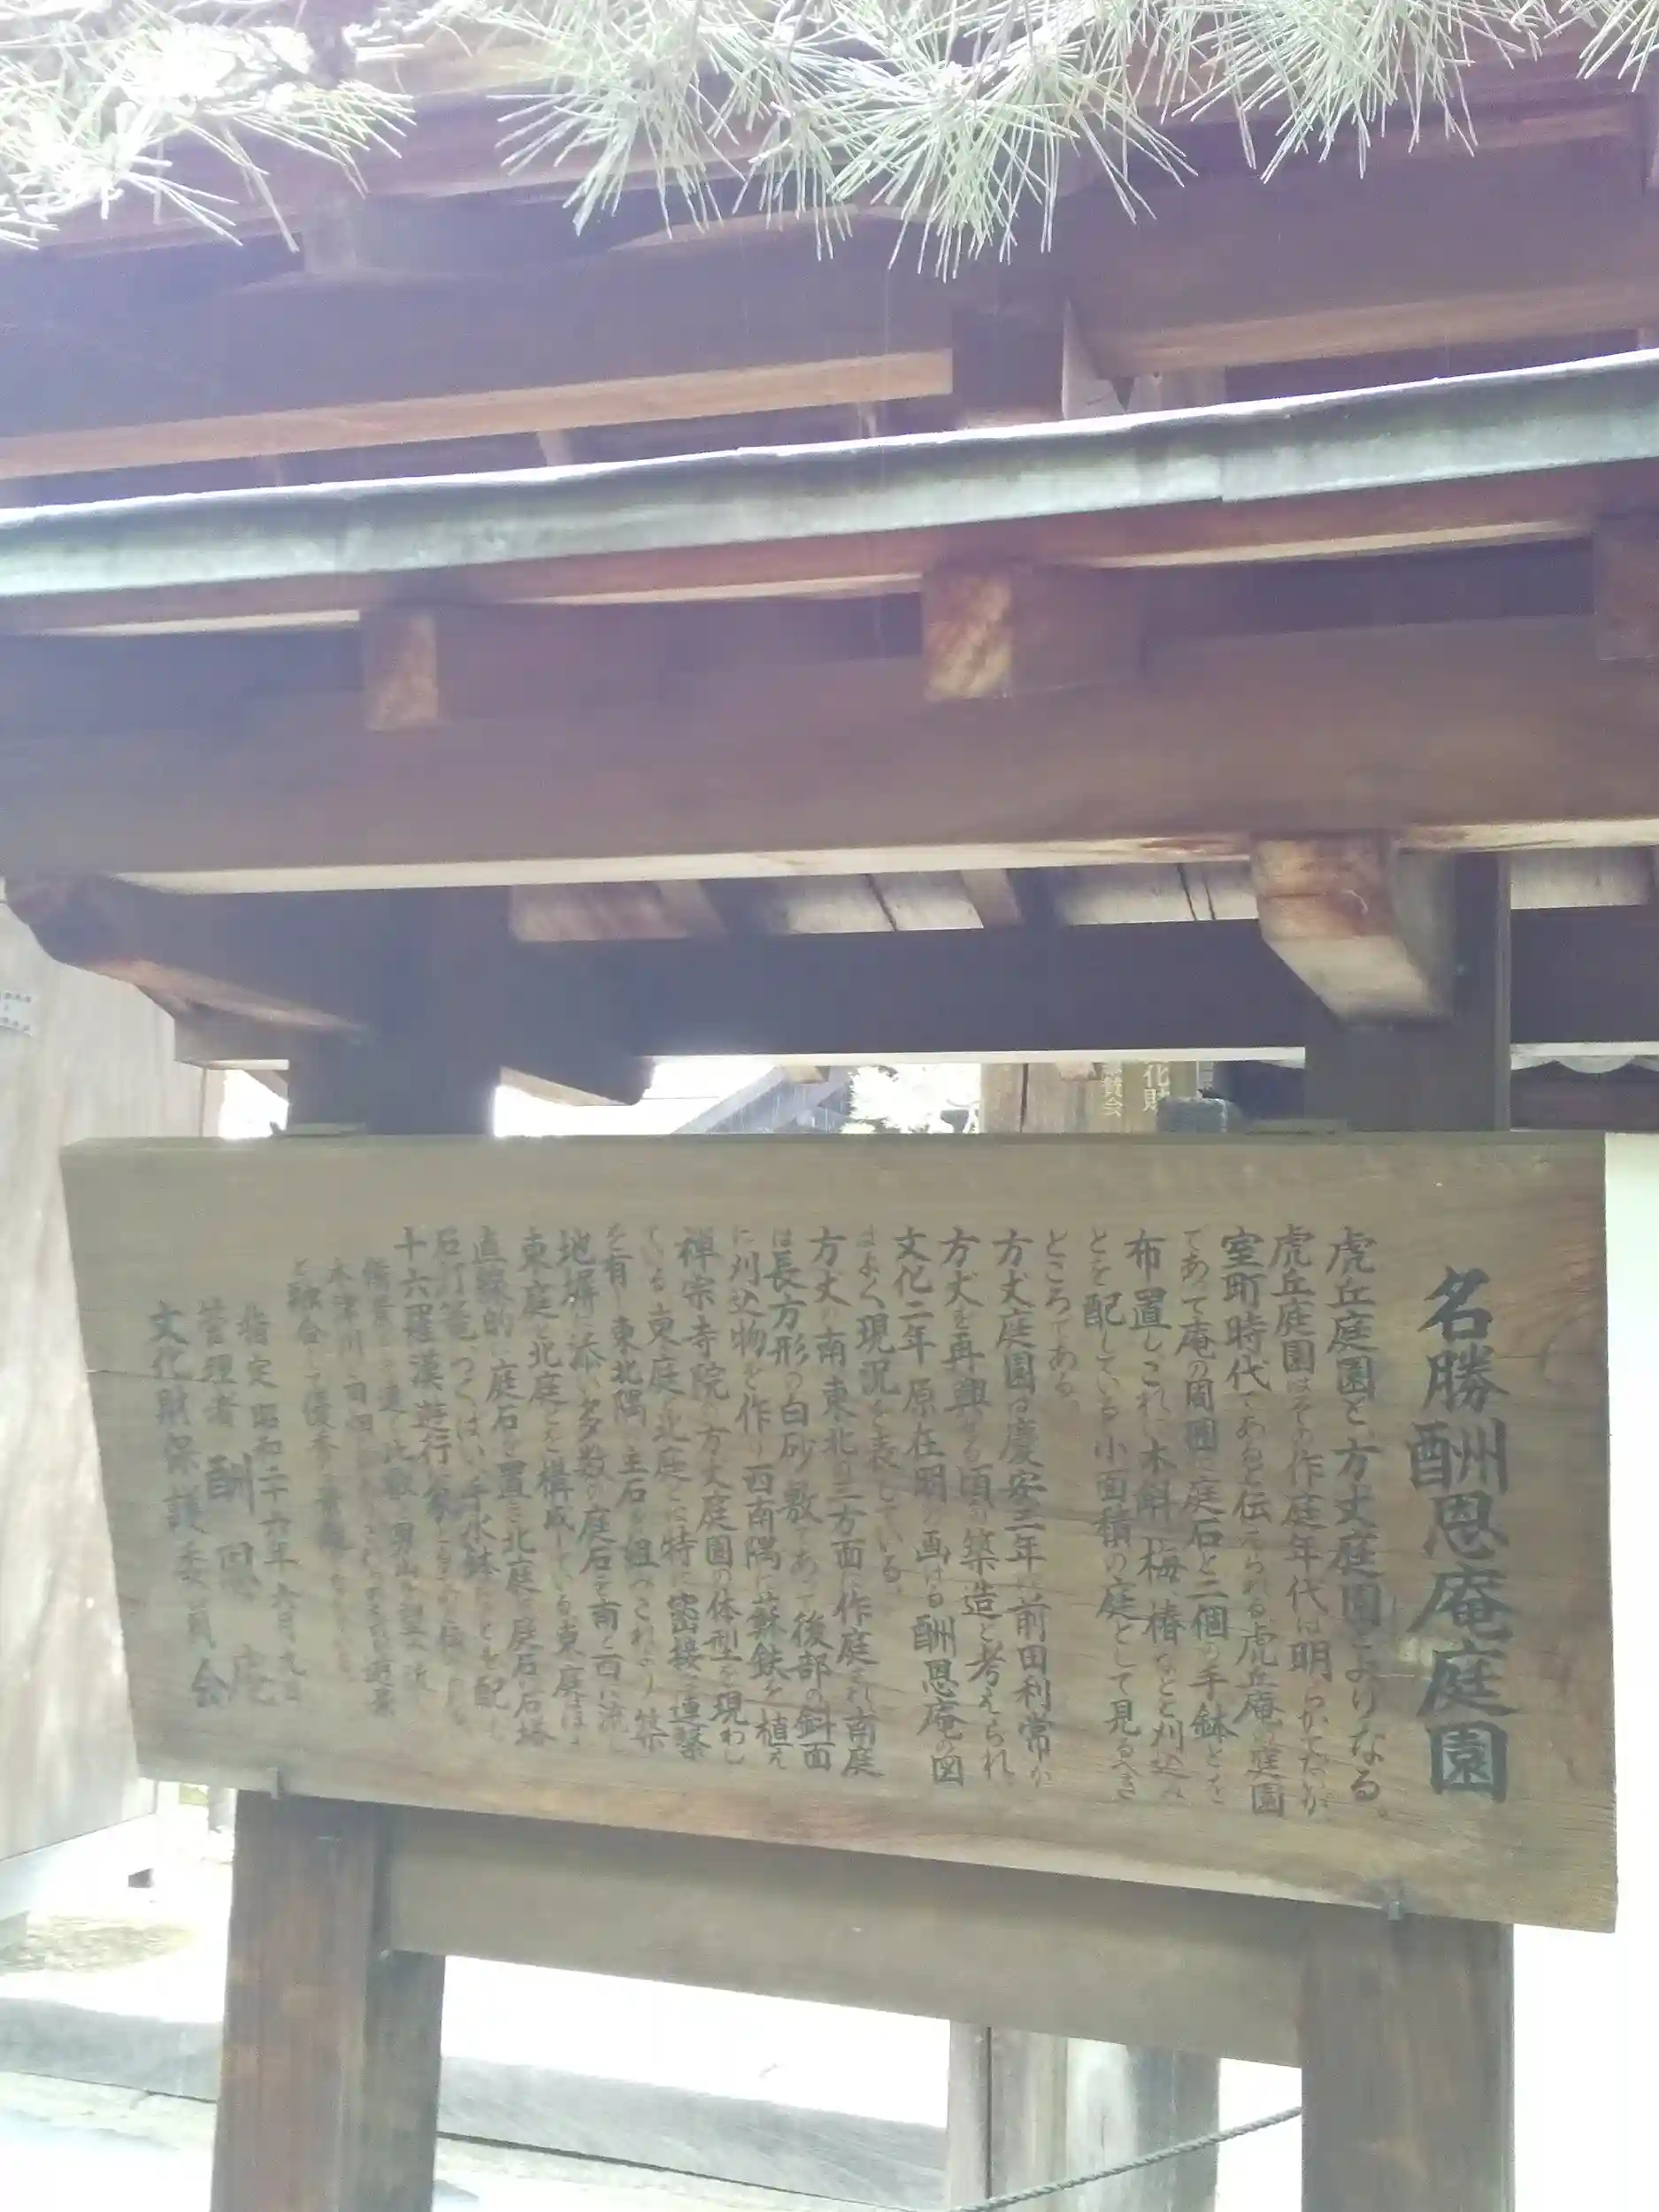 名勝酬恩庵庭園
虎丘庭園と方丈庭園よりなる。
虎丘庭園はその作庭年代は明らかでないが
室町時代であると伝えられる虎丘庵の庭園
であって庵の周囲に庭石と二個の手鉢とを
布置しこれに木斛、梅、椿などと刈込み
とを配している小面積の庭として見るべき
ところである。
方丈庭園は慶安三年前田利常が
方丈を再興せる頃の築造と考えられ
文化二年原在明の画ける酬恩庵の図
はよく現況を表している。
方丈の南東北の三方面に作庭され南庭
は長方形の白砂敷であって後部の斜面
に刈込物を作り西南隅に蘇鉄を植え
禅宗寺院の方丈庭園の体型を現わし
ている 東庭と北庭とは特に密接な連繋
を有し東北隅に主石を組みこれより築
地塀に添い多数の庭石を南と西に流し
東庭と北庭とを構成している 東庭は
直線的に庭石を置き北庭は庭石に石塔
石灯篭、つくばい、手水鉢などを配し
十六羅漢遊行の
木津川
と融合して優秀な
指定 昭和二十六年六月九日
管理者 酬恩庵
文化財保護委員会
化財
賛会